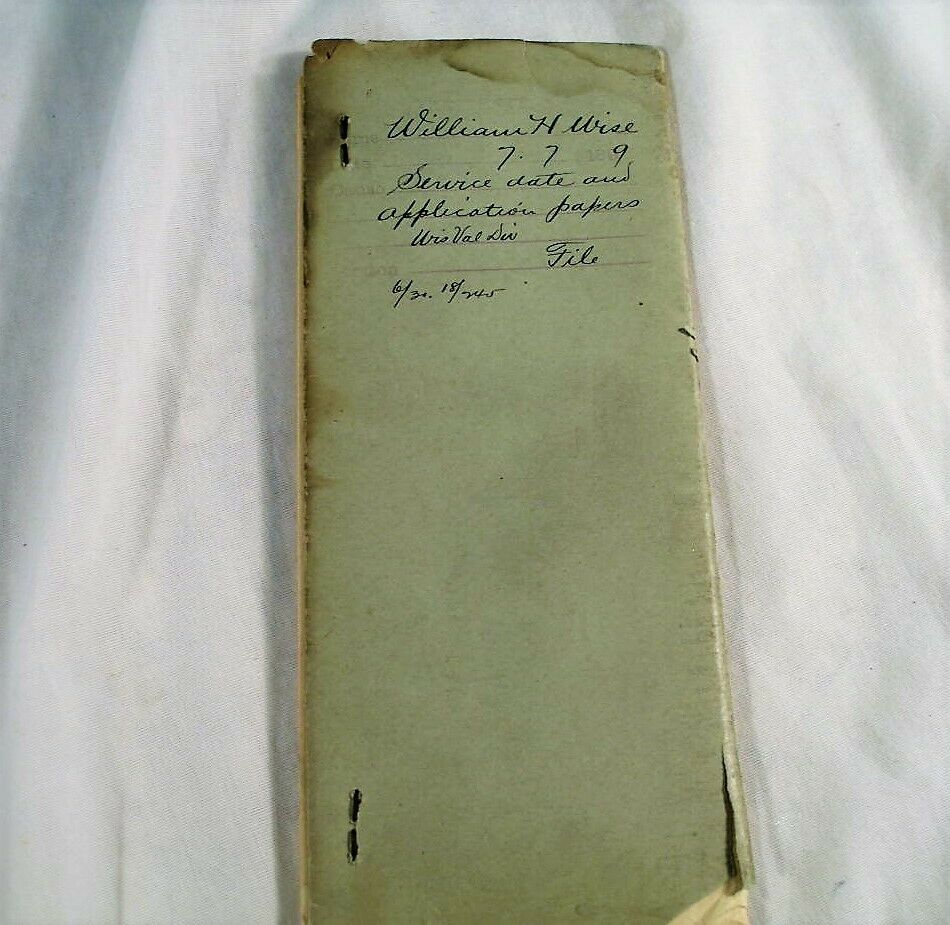 William H Wise
7. 7 9
Service date and
application papers
Wis Val Div
File